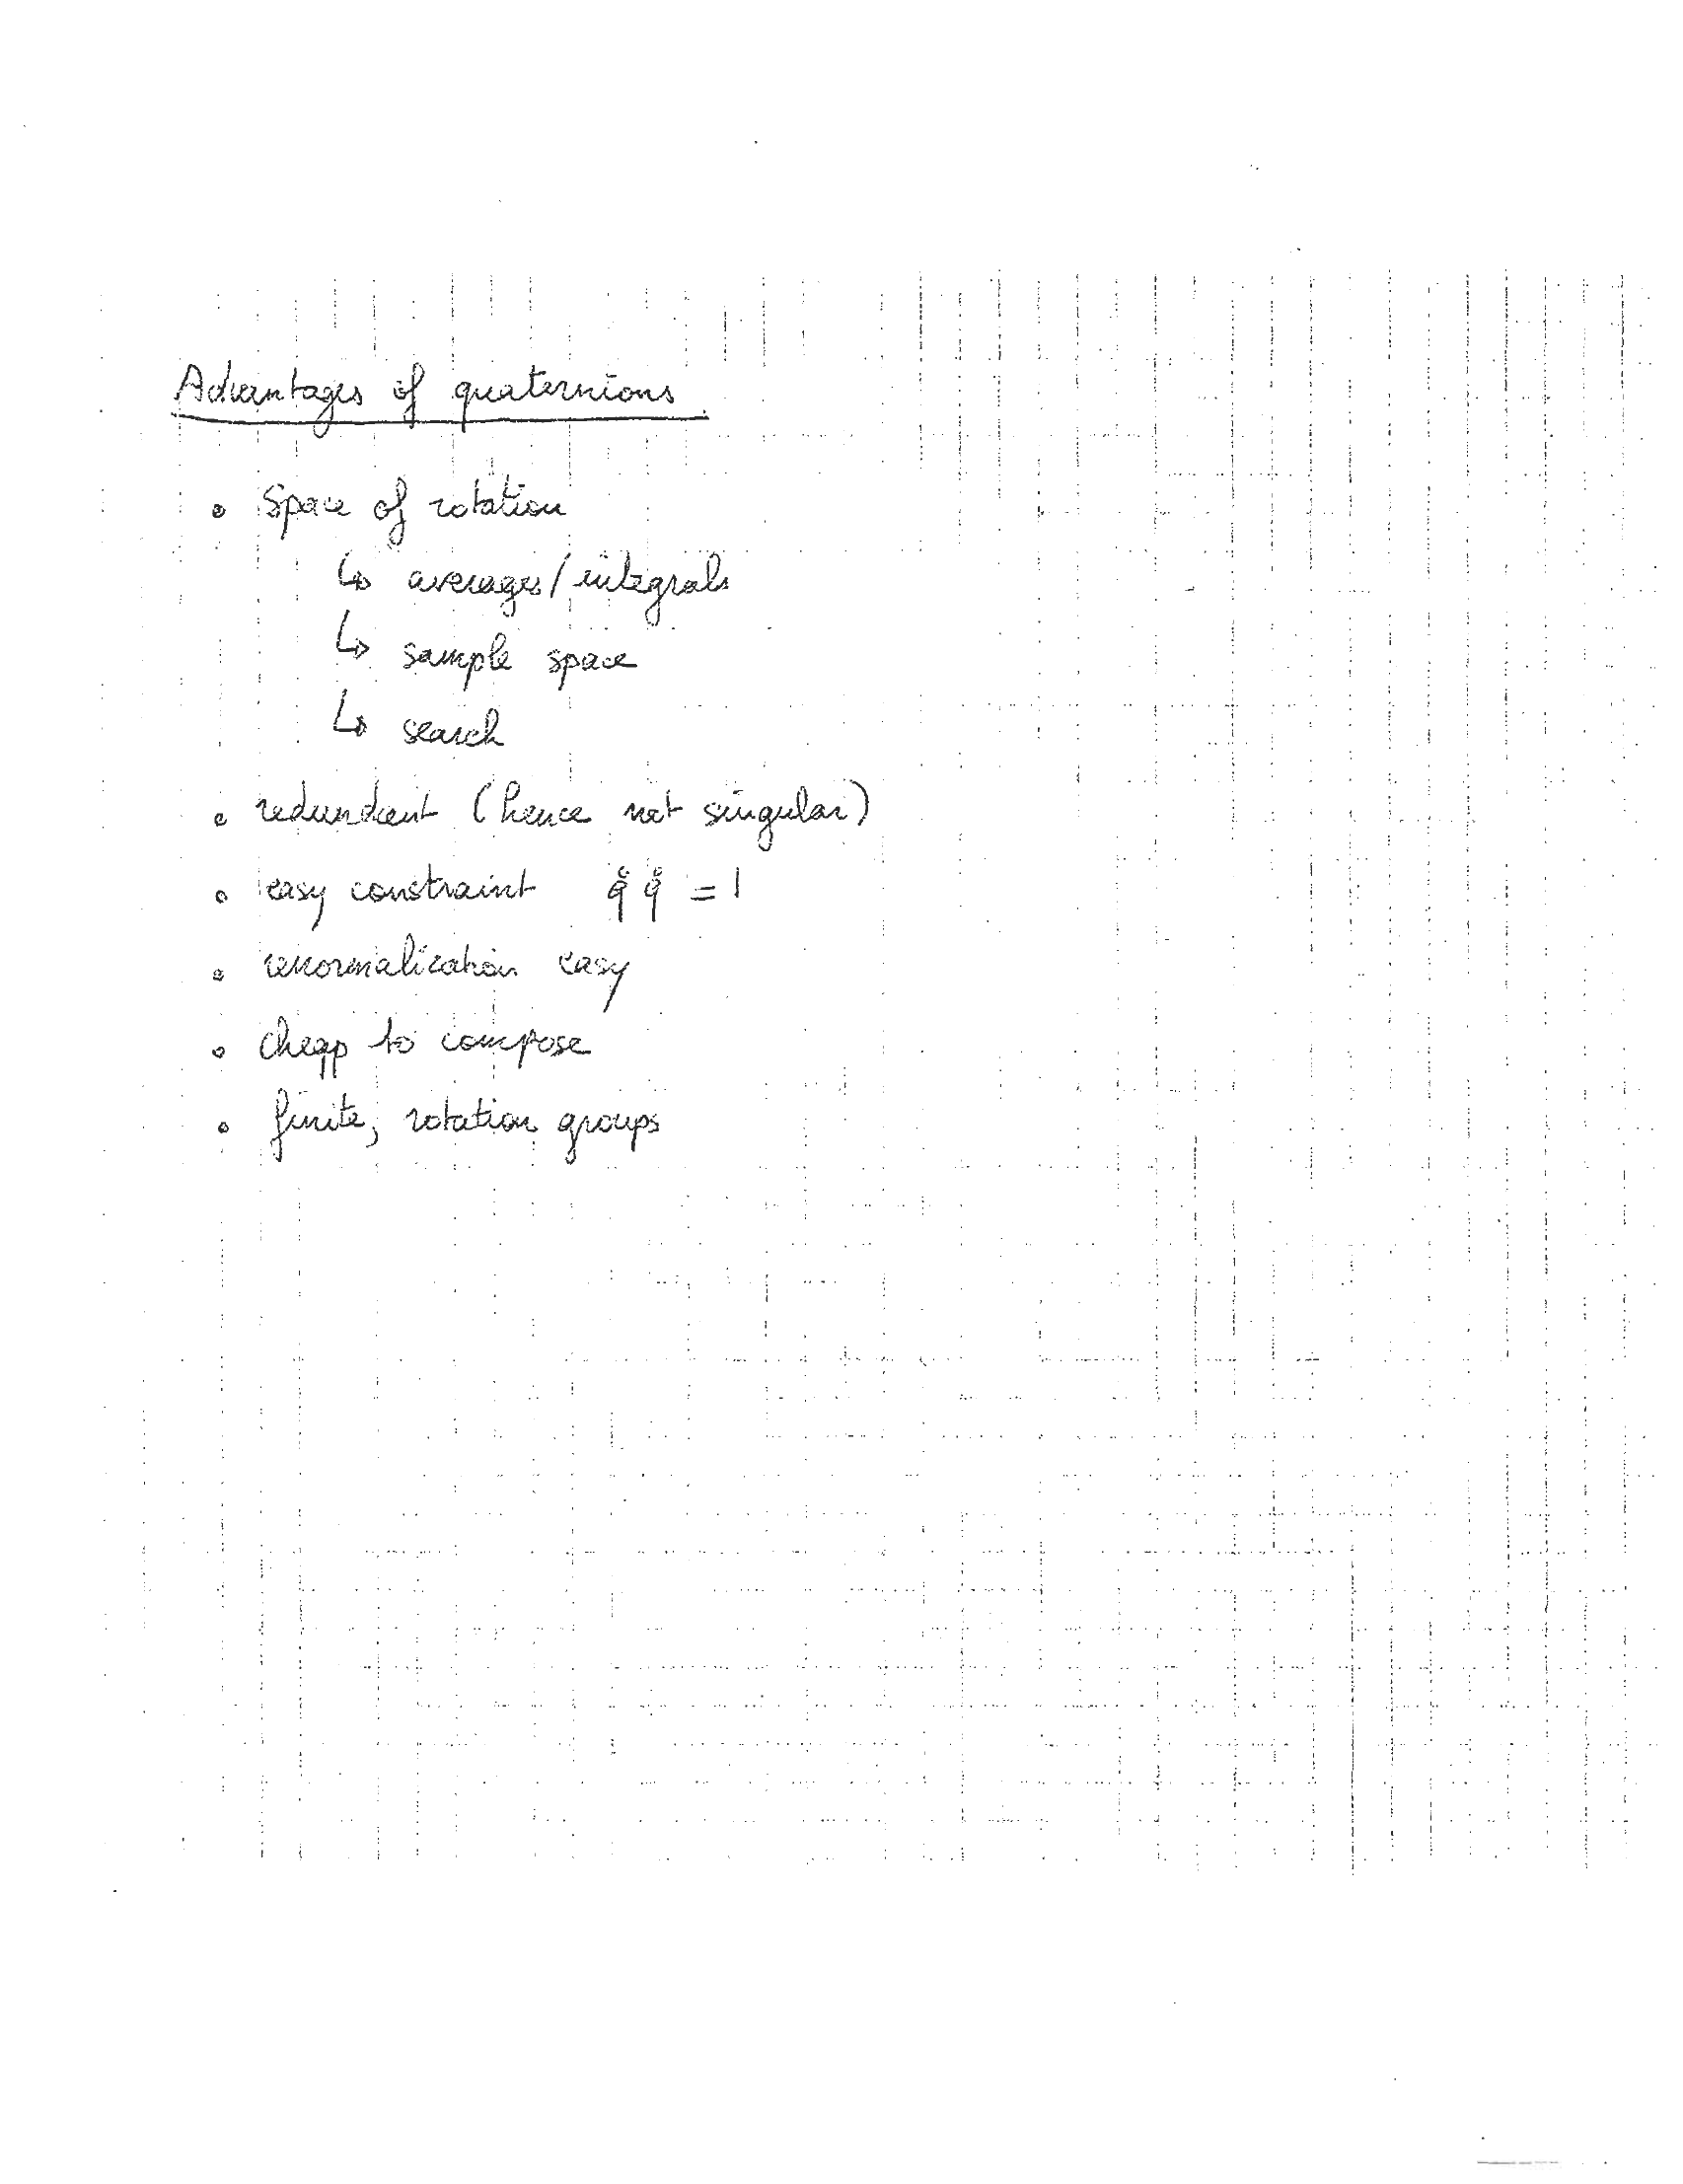 Advantages of quaternions
• Space of rotation
↳ averages/integrals
↳ sample space
↳ search
• redundant (hence not singular)
• easy constraint q̊ q̊ = 1
• renormalization easy
• cheap to compose
• finite, rotation groups